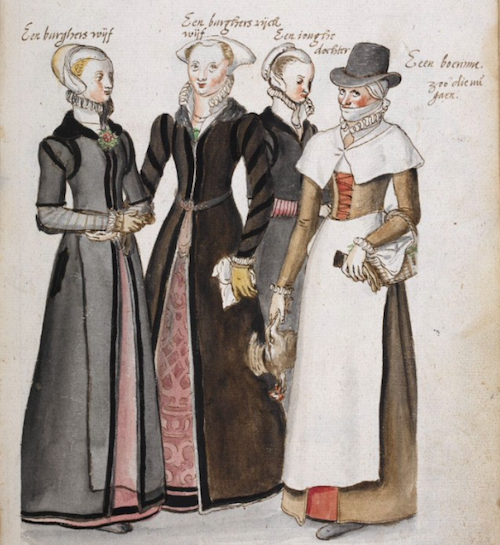 Een burghers wijf
Een burghers rijck
wijf
Een ionghe
dochter
Een boerinne.
zoo die nu
gaen.